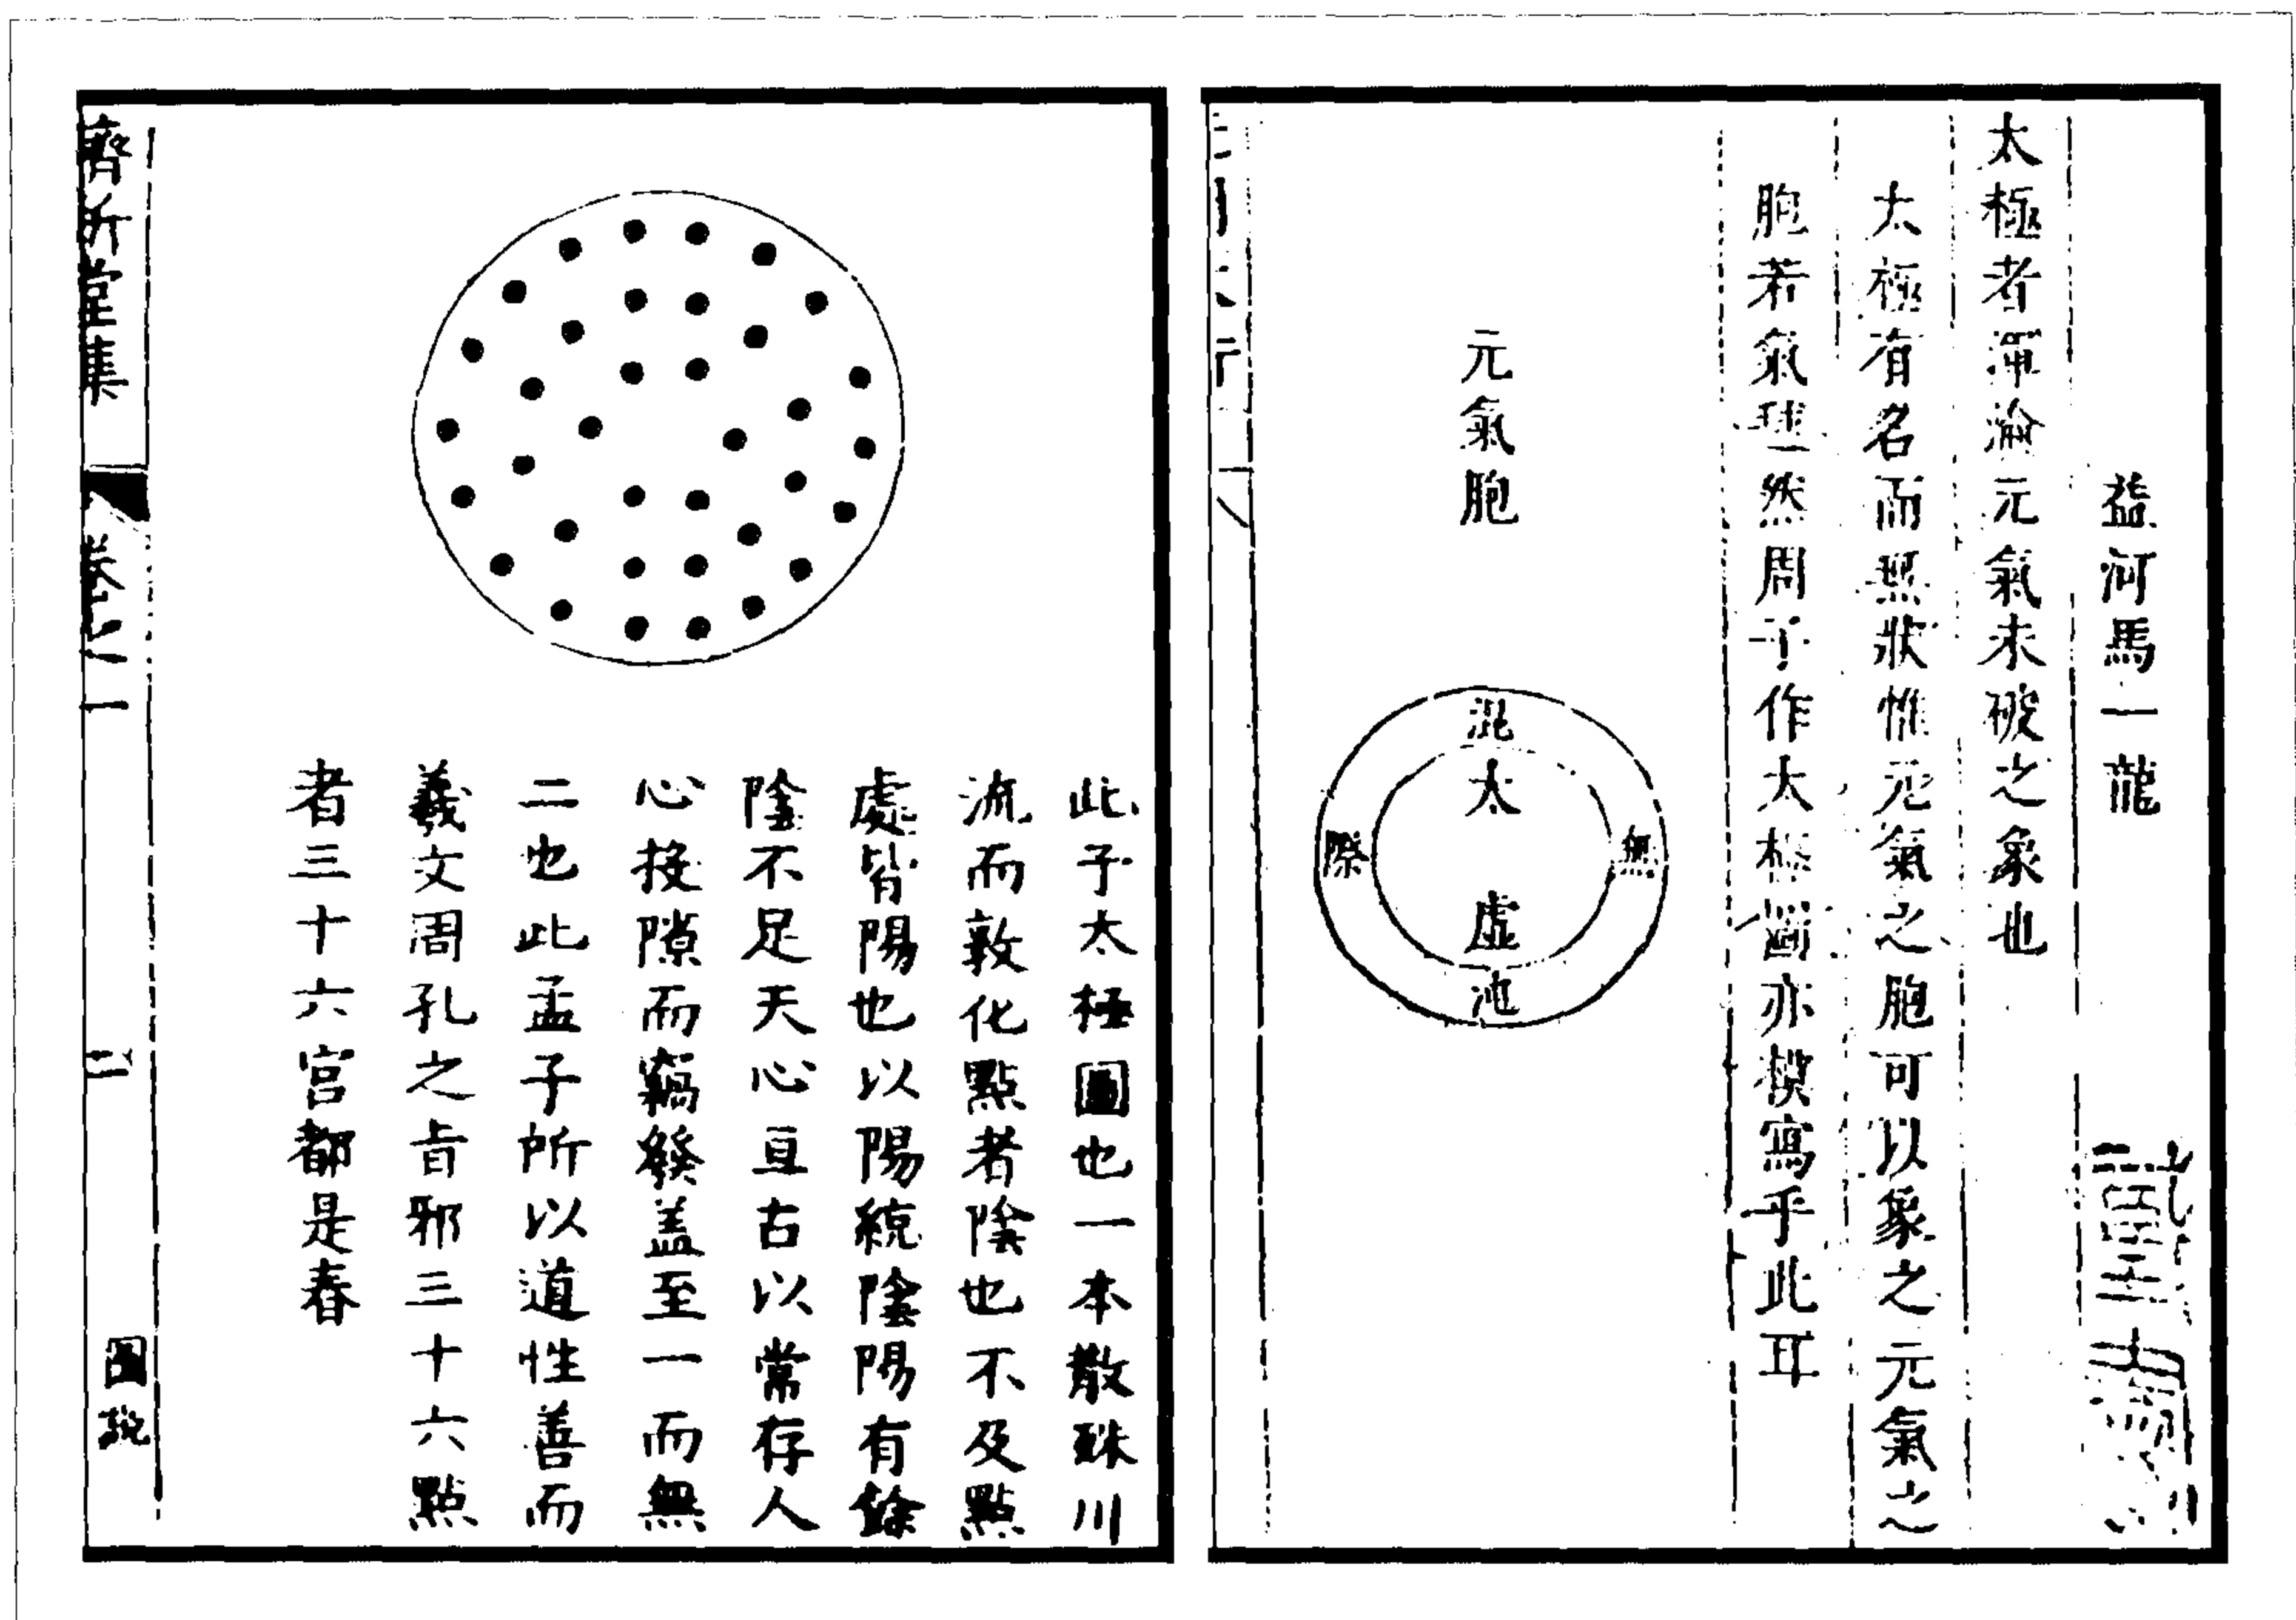 益河馬一龍
太極者渾淪元氣未破之象也
太極有名而無狀惟元氣之胞可以象之元氣之
胞若氣毬然周子作太極圖亦摸寫乎此耳
元氣胞
混
太
虛
沌
無
際
此予太極圖也一本散殊川
流而敦化點者陰也不及點
處皆陽也以陽統陰陽有餘
陰不足天心亘古以常存人
心投隙而竊發蓋至一而無
二也此孟子所以道性善而
羲文周孔之旨邪三十六點
者三十六宮都是春
卷之一
二
圖說